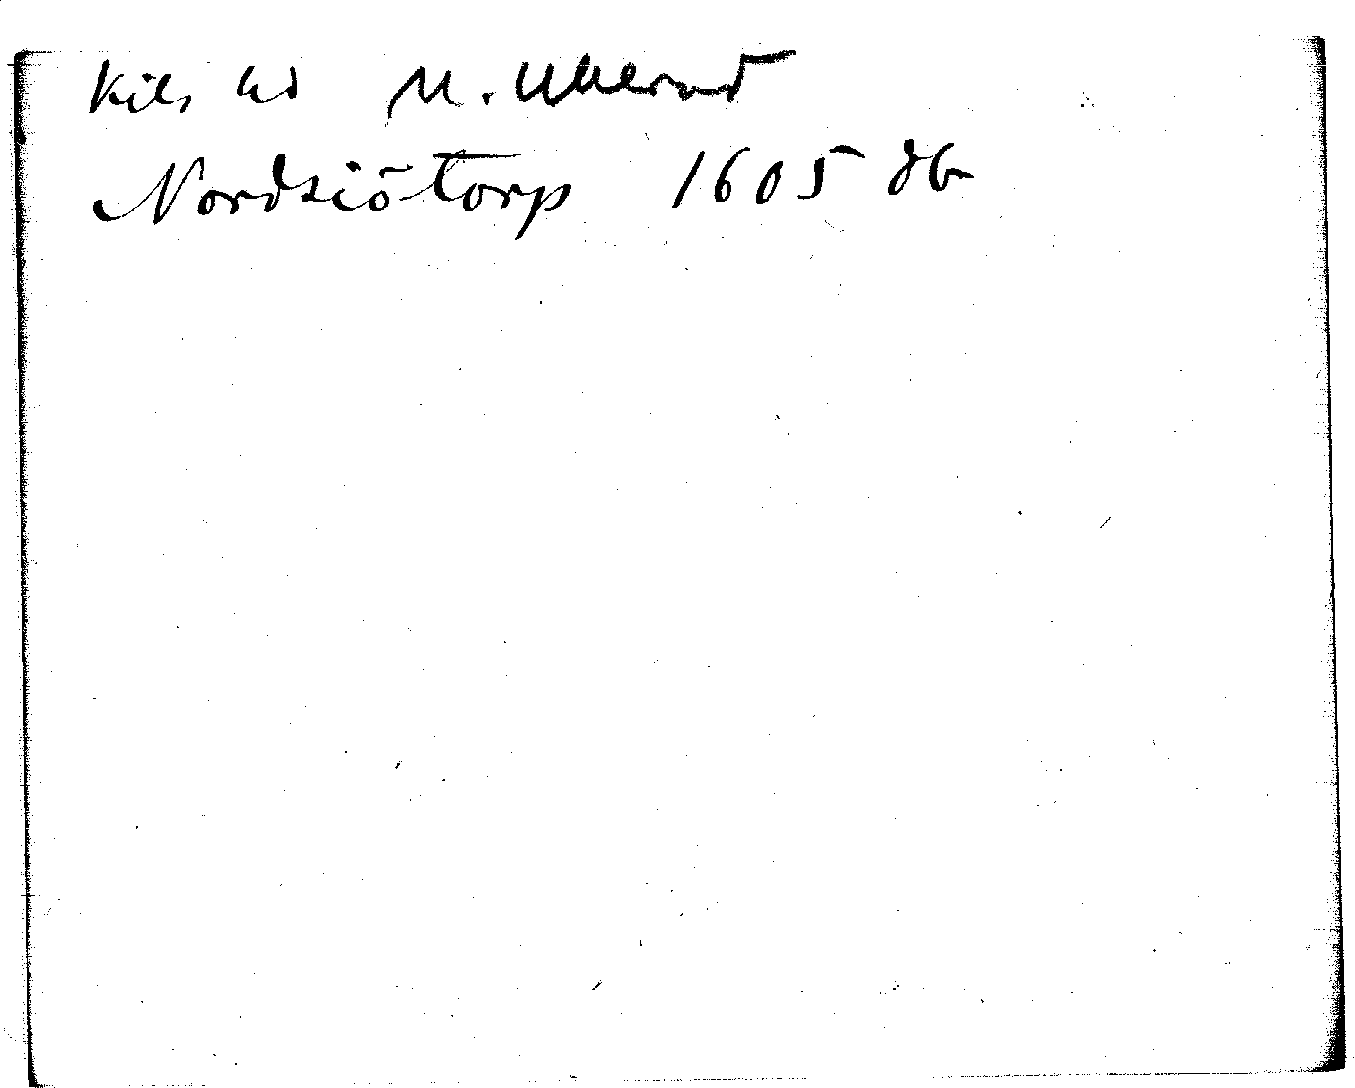 Kils hd N. Ullerud
Nordsiötorp 1605 db